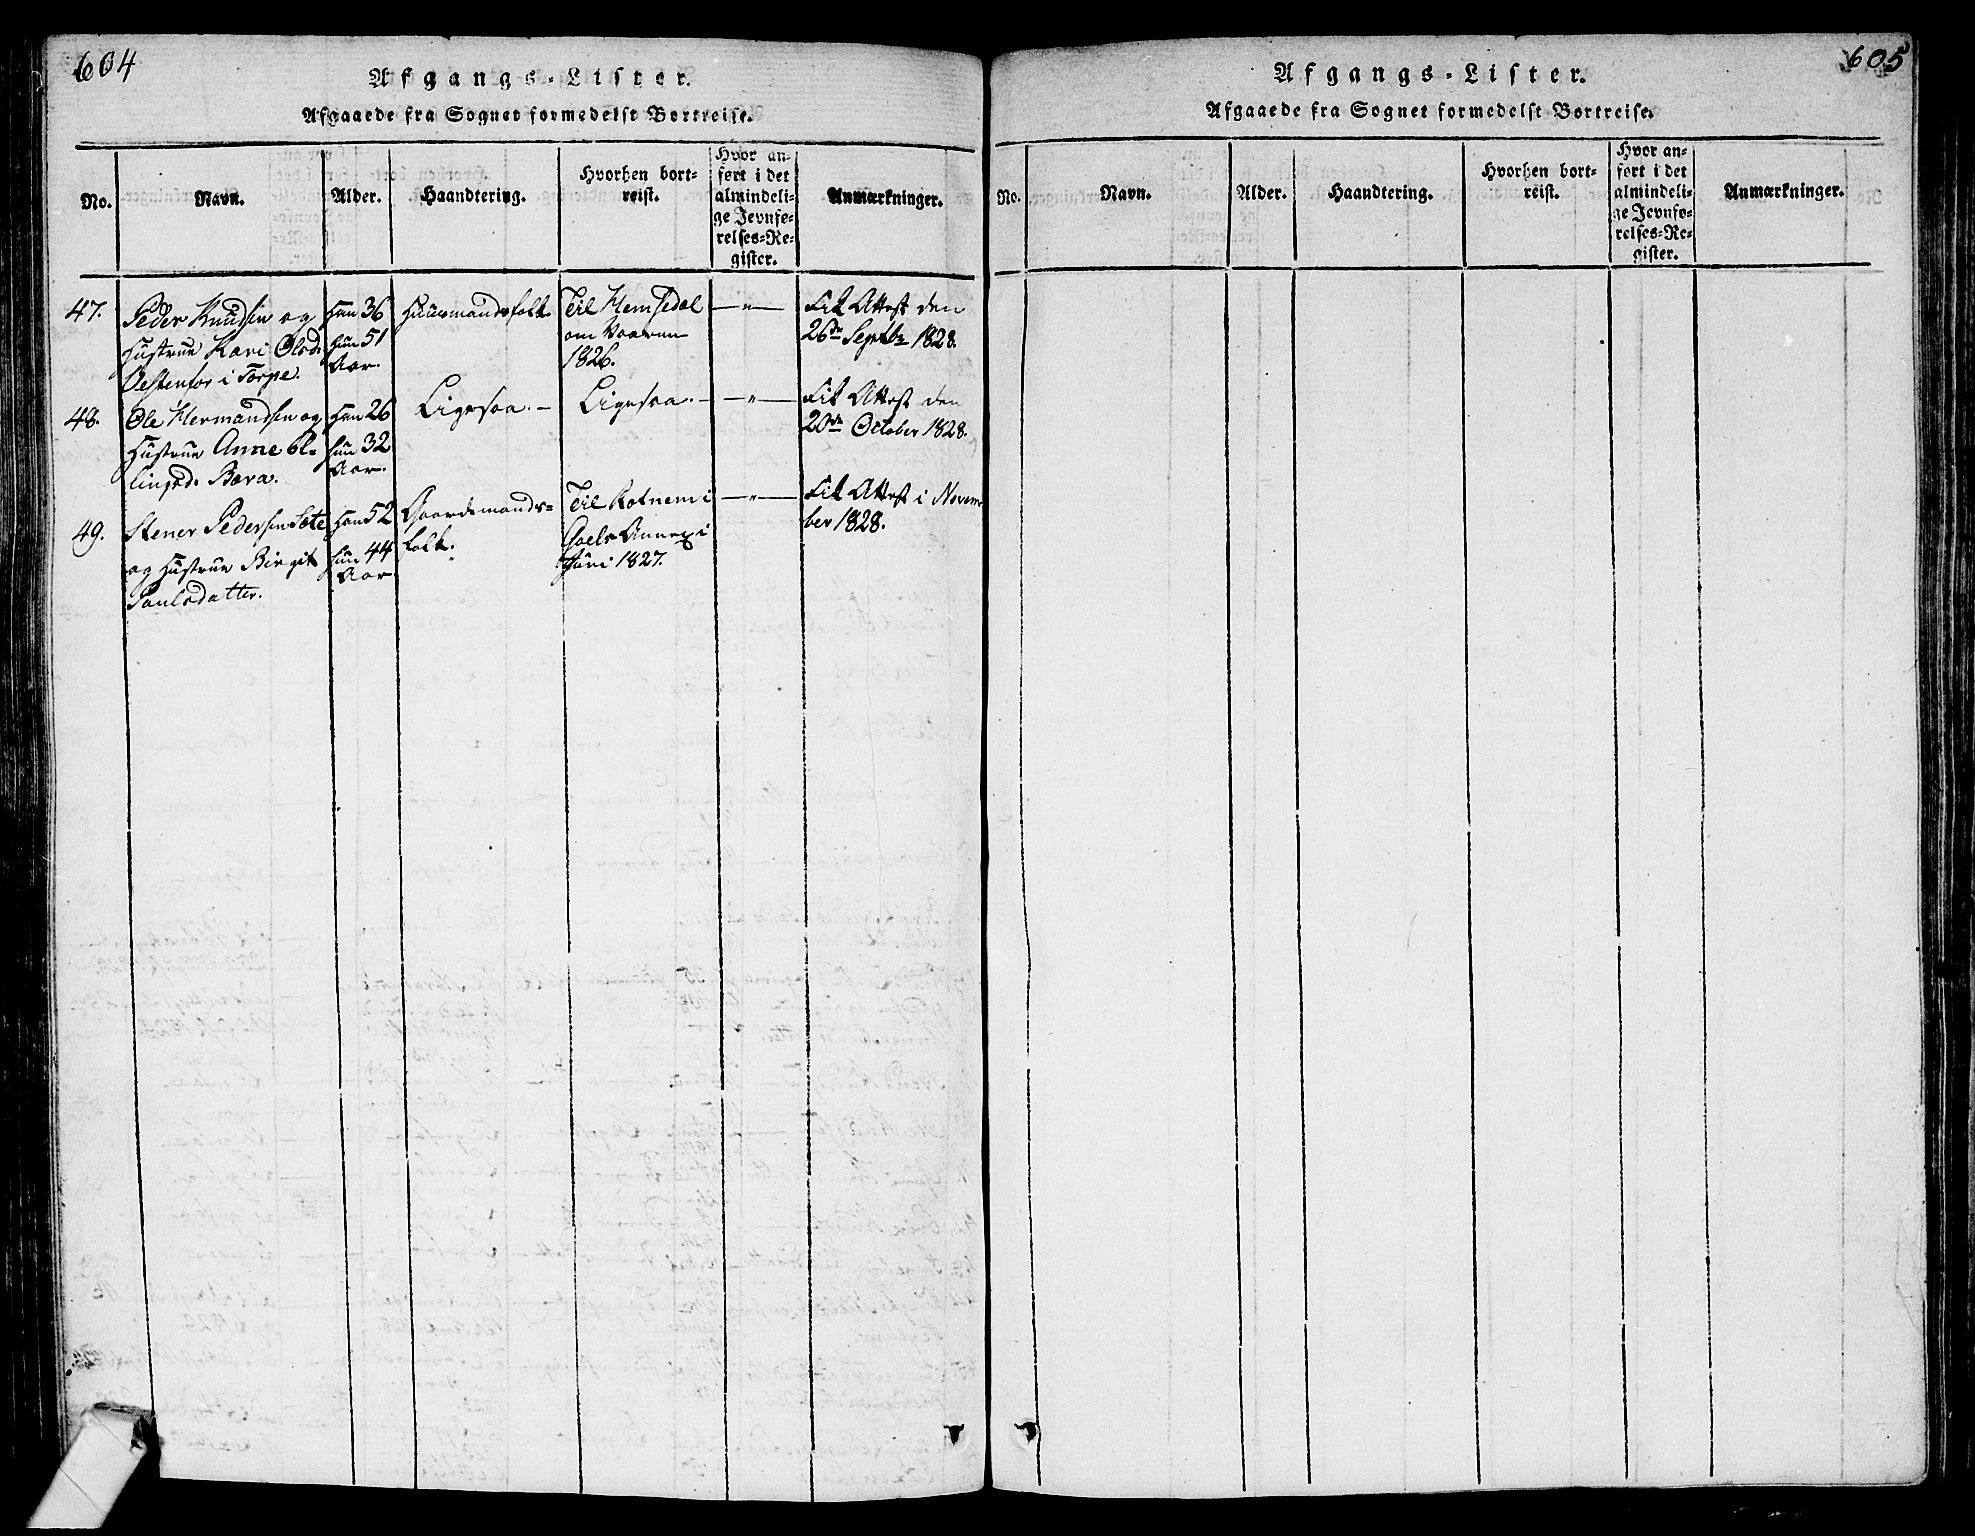 604
Afgangs-Lister.
Afgaaede fra Sognet formedelst Bortreise.
No.
Navn.
Alder.
Haandtering.
Hvorhen bort-
reist.
Hvor an-
ført i det
almindeli-
ge Jevnfø-
relses-Re-
gister.
Anmærkninger.
47.
Peder Knudsen og
Hustrue Kari Olsd.
Vestenfor i Torpe.
Han 36
hun 51
Aar.
Huusmandsfolk
Til Hemsedal
om Vaaren
1826.
—"—
Fik Attest den
26de Septbr 1828.
48.
Ole Hermandsen og
Hustrue Anne El-
lingsd. Bæra.
Han 26
hun 32
Aar.
Ligesaa. —
Ligesaa. —
—"—
Fik Attest den
20de October 1828.
49.
Stener Pedersen Sæte
og Hustrue Birgit
Paulsdatter.
Han 52
hun 44
Aar
Gaardemands-
folk.
Til Rotnem i
Goels Annex i
Juni 1827.
—"—
Fik Attest i Novem-
ber 1828.
605
Afgangs-Lister.
Afgaaede fra Sognet formedelst Bortreise.
No.
Navn.
Alder.
Haandtering.
Hvorhen bort-
reist.
Hvor an-
ført i det
almindeli-
ge Jevnfø-
relses-Re-
gister.
Anmærkninger.